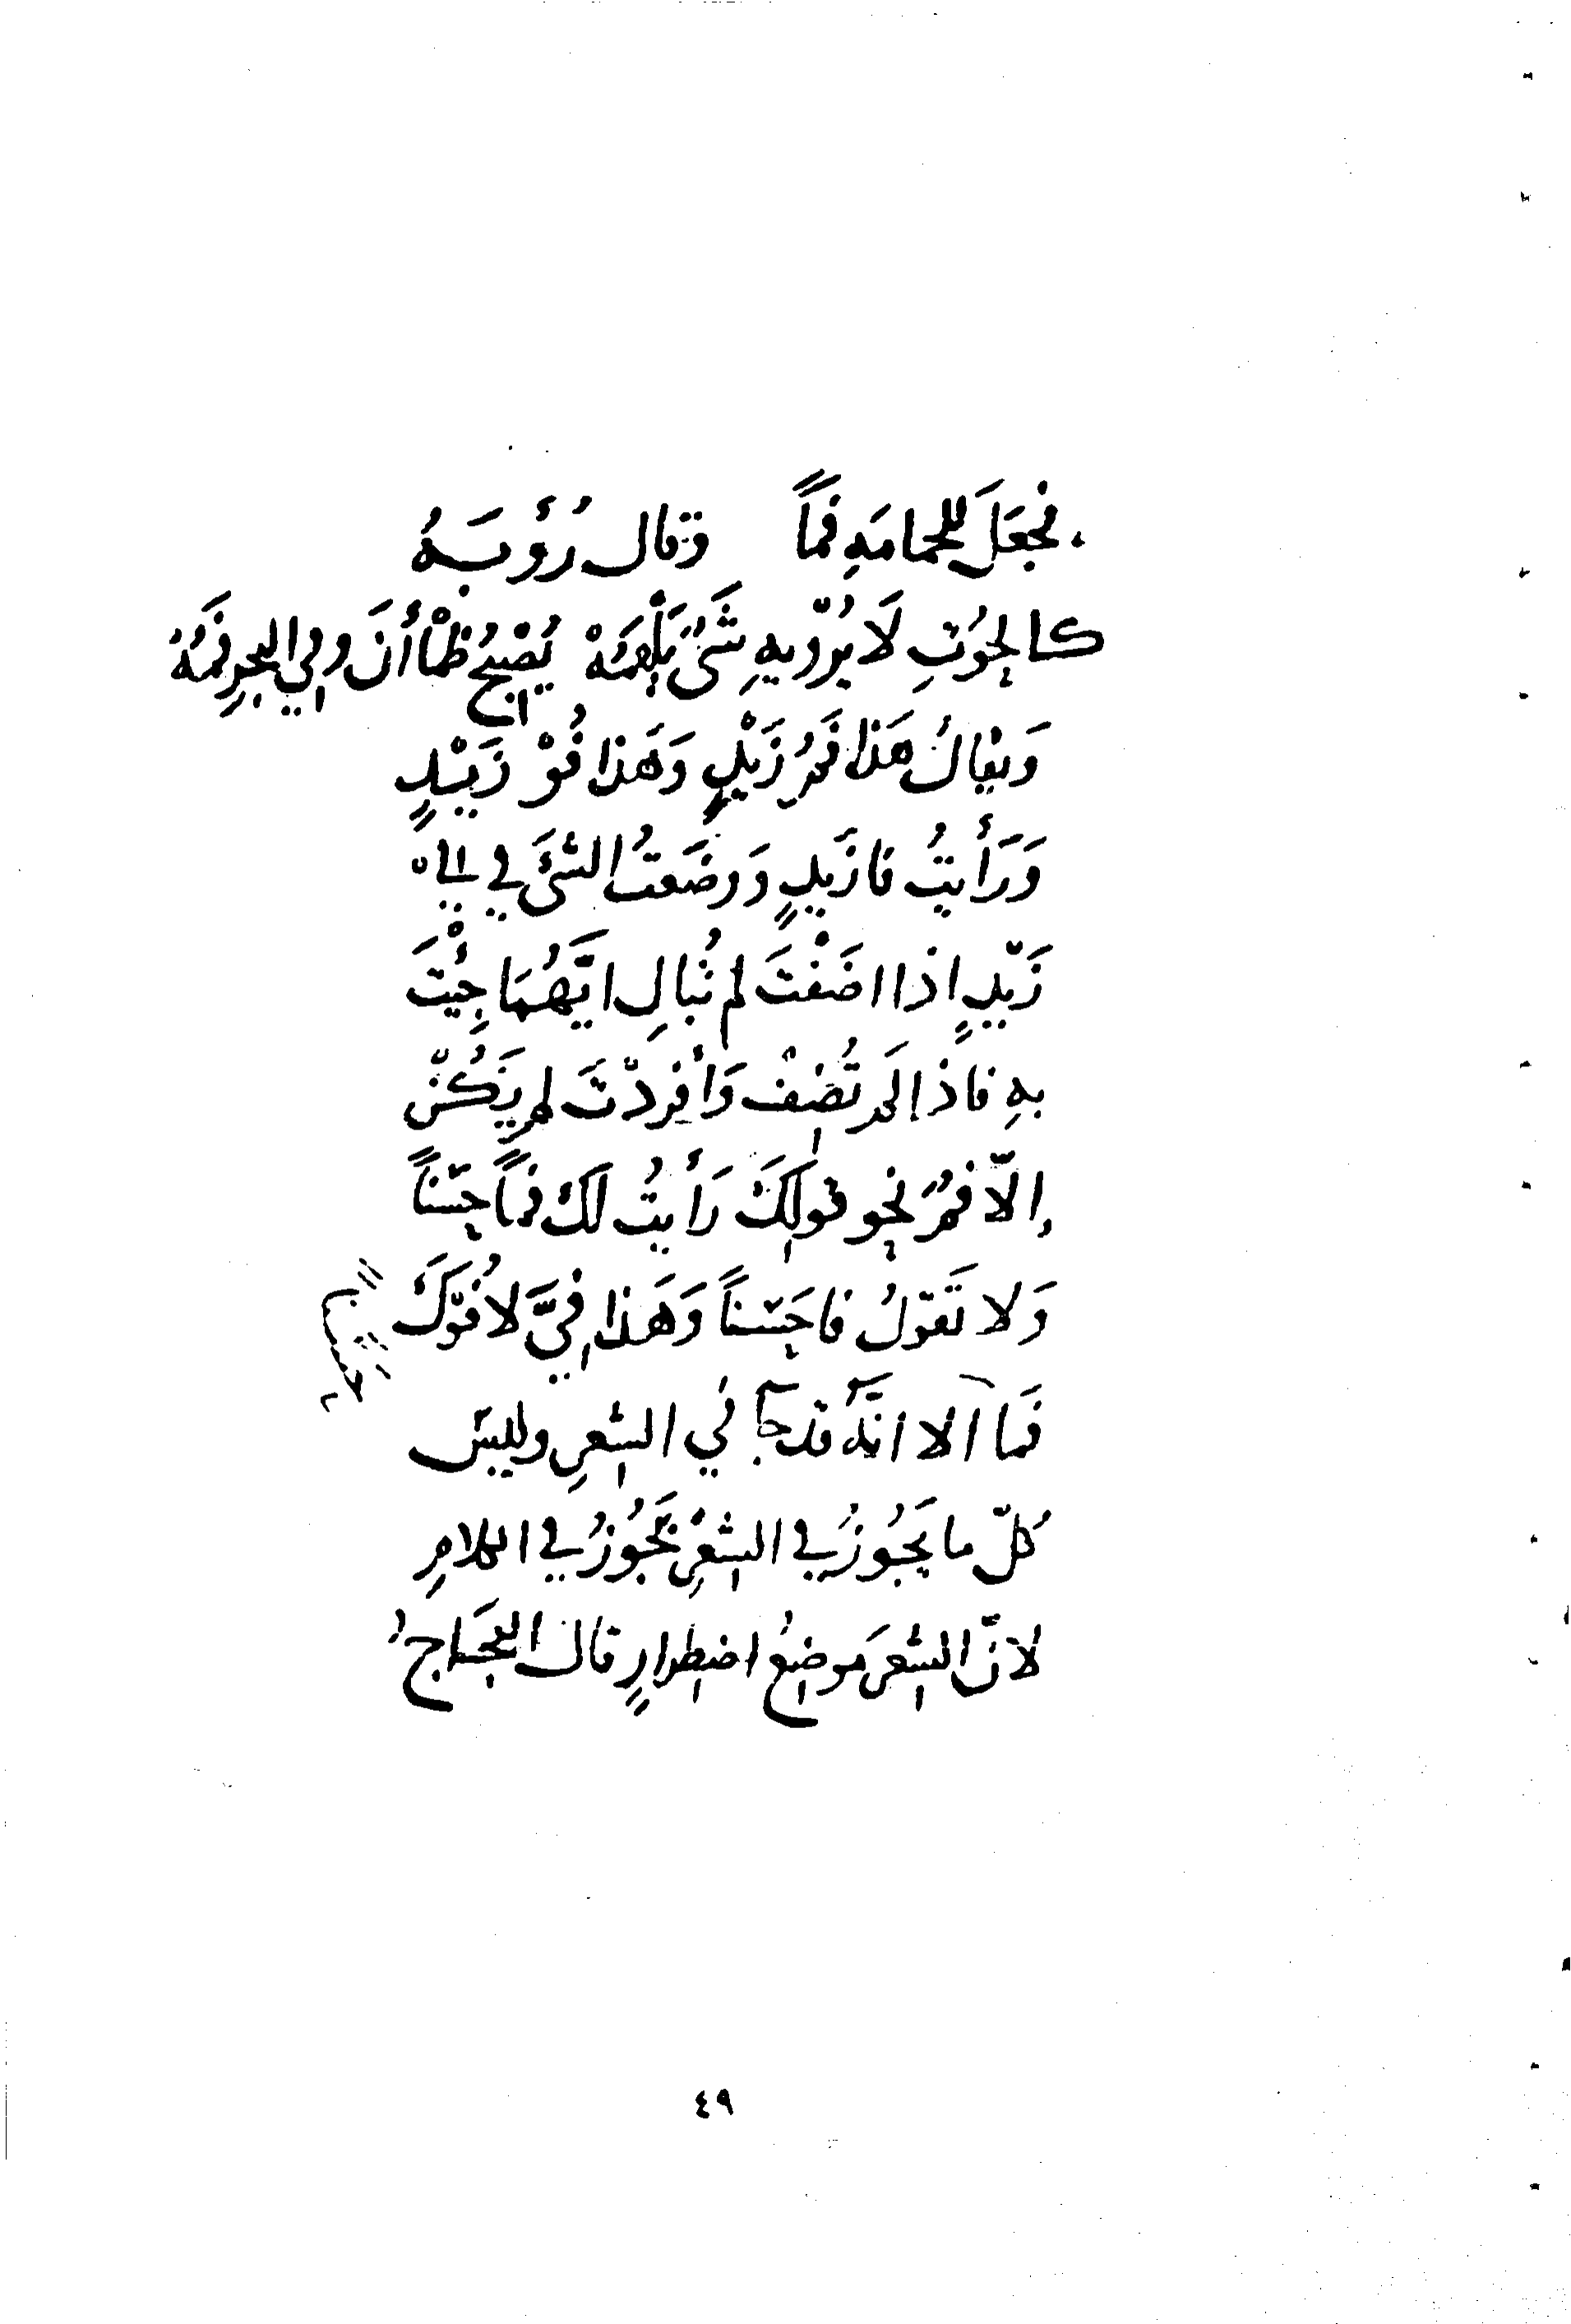 فجعَلَ للحمامَهِ فماً وقال رُؤبَهُ
كالحُوتِ لَا يُرْويهِ شَىْءٌ يَلْهَمُهْ يُصْبِحُ ظَمْأنَ وفي البحرِ فَمُهْ
وَيقالُ هَذا فَمُ زَيْدٍ وَهَذا فُوْ زَيْدٍ
وَرَأَيتُ فا زَيدٍ وَوضَعتُ الشىَٔ في في
زَيْدٍ اذا اضَفْتَ لم تُبَالِ ايَّهُمَا جِئْتَ
بهِ فاذا لَم تُضِفْ وَأفردْتَ لم يَكُنْ
إلّا فمٌ نحو قولِكَ رَأَيتُ لك فماً حَسَناً
وَلا تَقوْلُ فا حَسَناً وَهَذا فِيَّ لا فُوْكَ
فما آلا انّهُ قد جآ في الشعرِ وليسَ
كلّ ما يَجُوزُ في الشعْرِ يَجُوزُ في الكلامِ
لانّ الشعرَ موضعُ اضطرارٍ قال العجّاجُ
٤٩